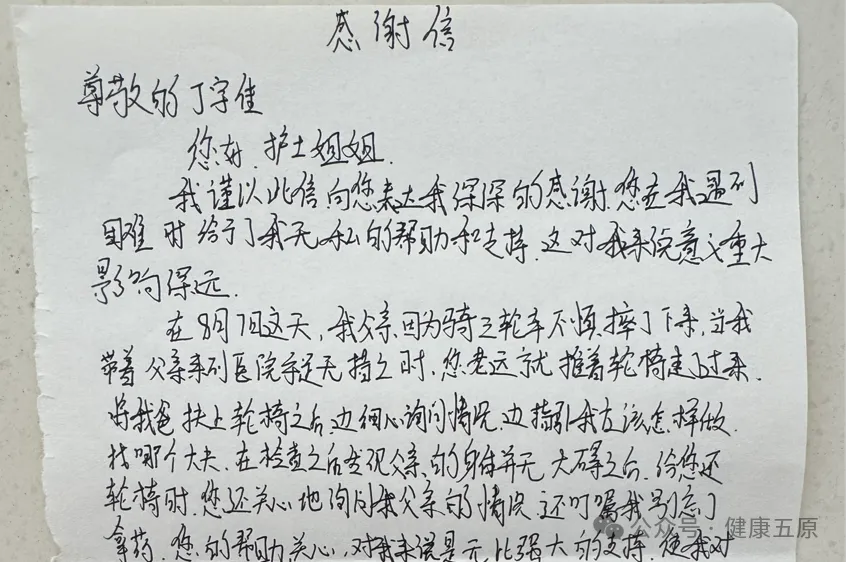 感谢信
尊敬的丁字佳
您好,护士姐姐.
我谨以此信向您表达我深深的感谢.您在我遇到
困难时给予了我无私的帮助和支持.这对我来说意义重大
影响深远.
在8月7日这天,我父亲因为骑三轮车不慎,摔了下来,当我
带着父亲来到医院手足无措之时.您老远就推着轮椅走了过来.
将我爸扶上轮椅之后,边细心询问情况,边指引我应该怎样做.
找哪个大夫.在检查之后发现父亲的身体并无大碍之后.给您还
轮椅时.您还关心地询问我父亲的情况 还叮嘱我别忘了
拿药.您的帮助关心,对我来说是无比强大的支持,使我对
公众号·健康五原